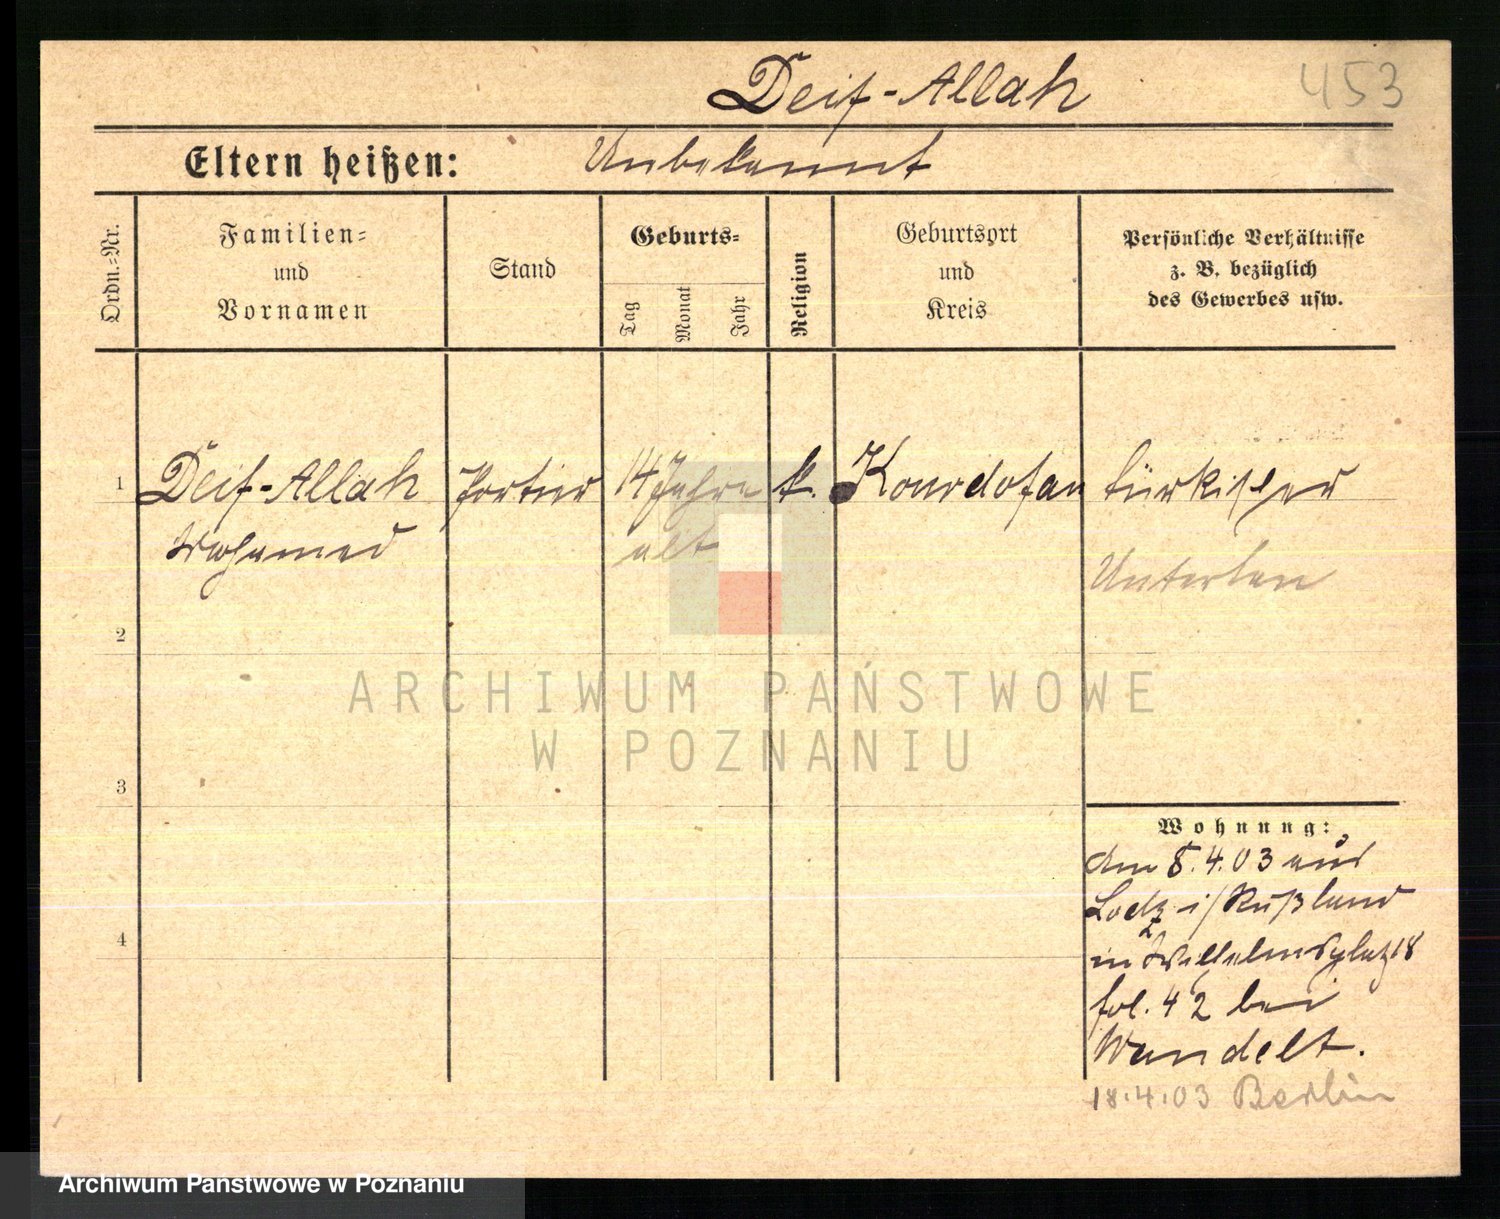 Deif-Allah
453
Eltern heißen: Unbekannt
Ordn.-Nr.
Familien-
und
Vornamen
Stand
Geburts-
Tag
Monat
Jahr
Religion
Geburtsort
und
Kreis
Persönliche Verhältnisse
z. B. bezüglich
des Gewerbes usw.
1 Deif-Allah Portier 14 Jahre k. Kourdofan türkischer
Mohamed alt Unterthan
2
3
4
Wohnung:
Am 8.4.03 aus
Lodz i/Rußland
in Wilhelmsplatz 18
fol. 42 bei
Wandelt.
18.4.03 Berlin
ARCHIWUM PAŃSTWOWE
W POZNANIU
Archiwum Państwowe w Poznaniu